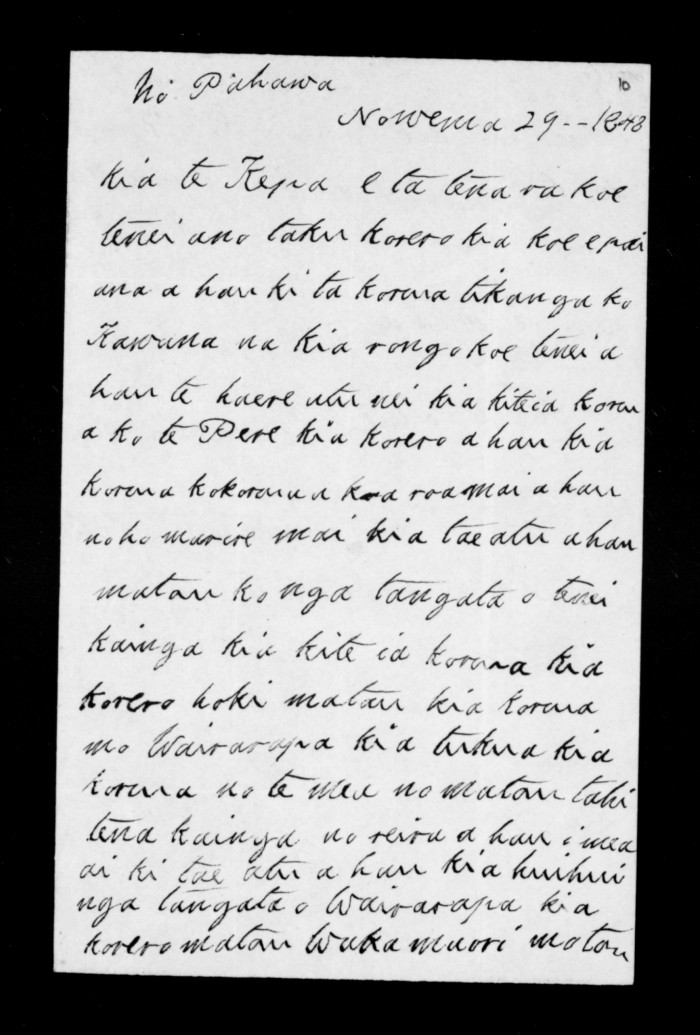 10
No Pahawa
Nowema 29--1848
kia te Kepa e ta tena ra koe
tenei ano taku korero kia koe e pai
ana a hau ki ta korua tikanga ko
Kawana na kia rongo koe tenei a
hau te haere atu nei kia kiteia koru
a ko te Pere kia korero a hau kia
korua kokorua a kaa roa mai a hau
noho marire mai kia tae atu a hau
matou ko nga tangata o tenei
kainga kia kite ia korua kia
korero hoki matou kia korua
mo Wairarapa kia tukua kia
korua no te mea no matou tahi
tena kainga no reira a hau i mea
ai ki tae atu a hau kia huihui
nga tangata o Wairarapa kia
korero matou Waka maori matou